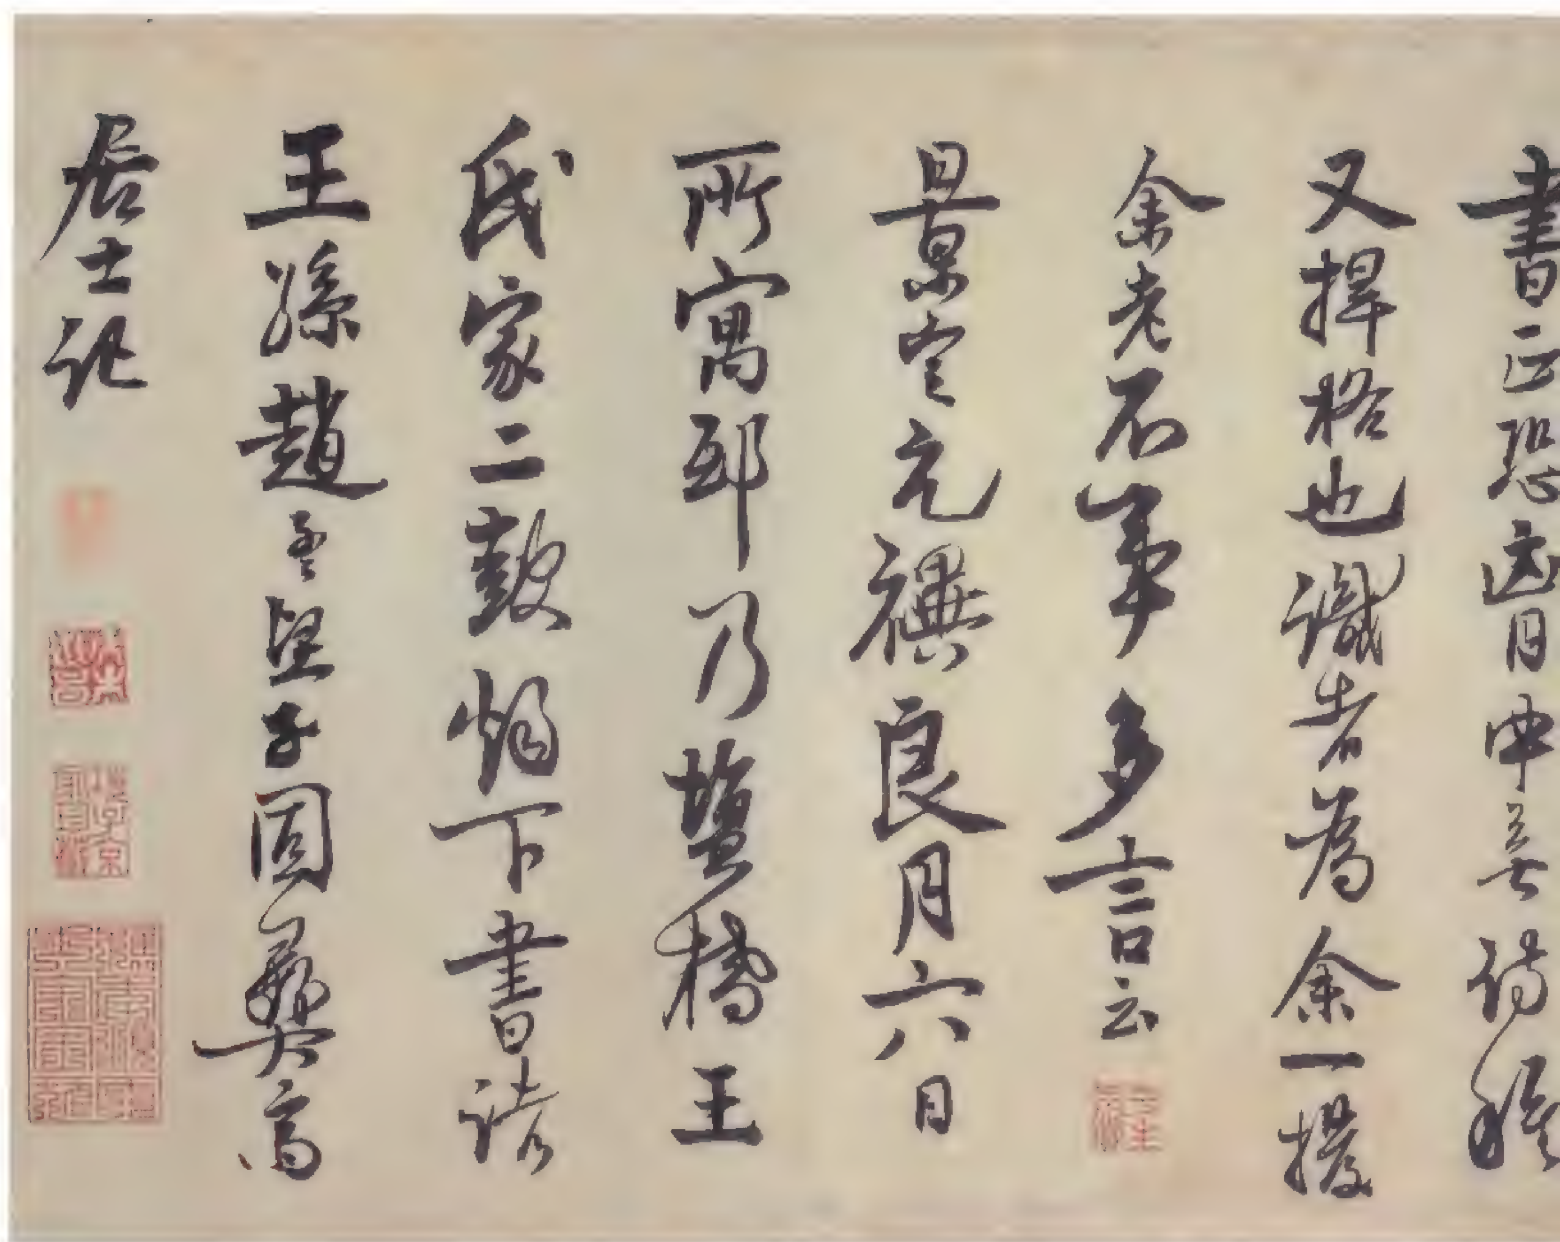 書正恐胷中無詩
又捍格也識者為余一撥
余老不事多言云
景定元禩良月六日
所寓邸乃鹽橋王
氏家二鼓燭下書諸
王孫趙孟堅子固彝齋
居士記